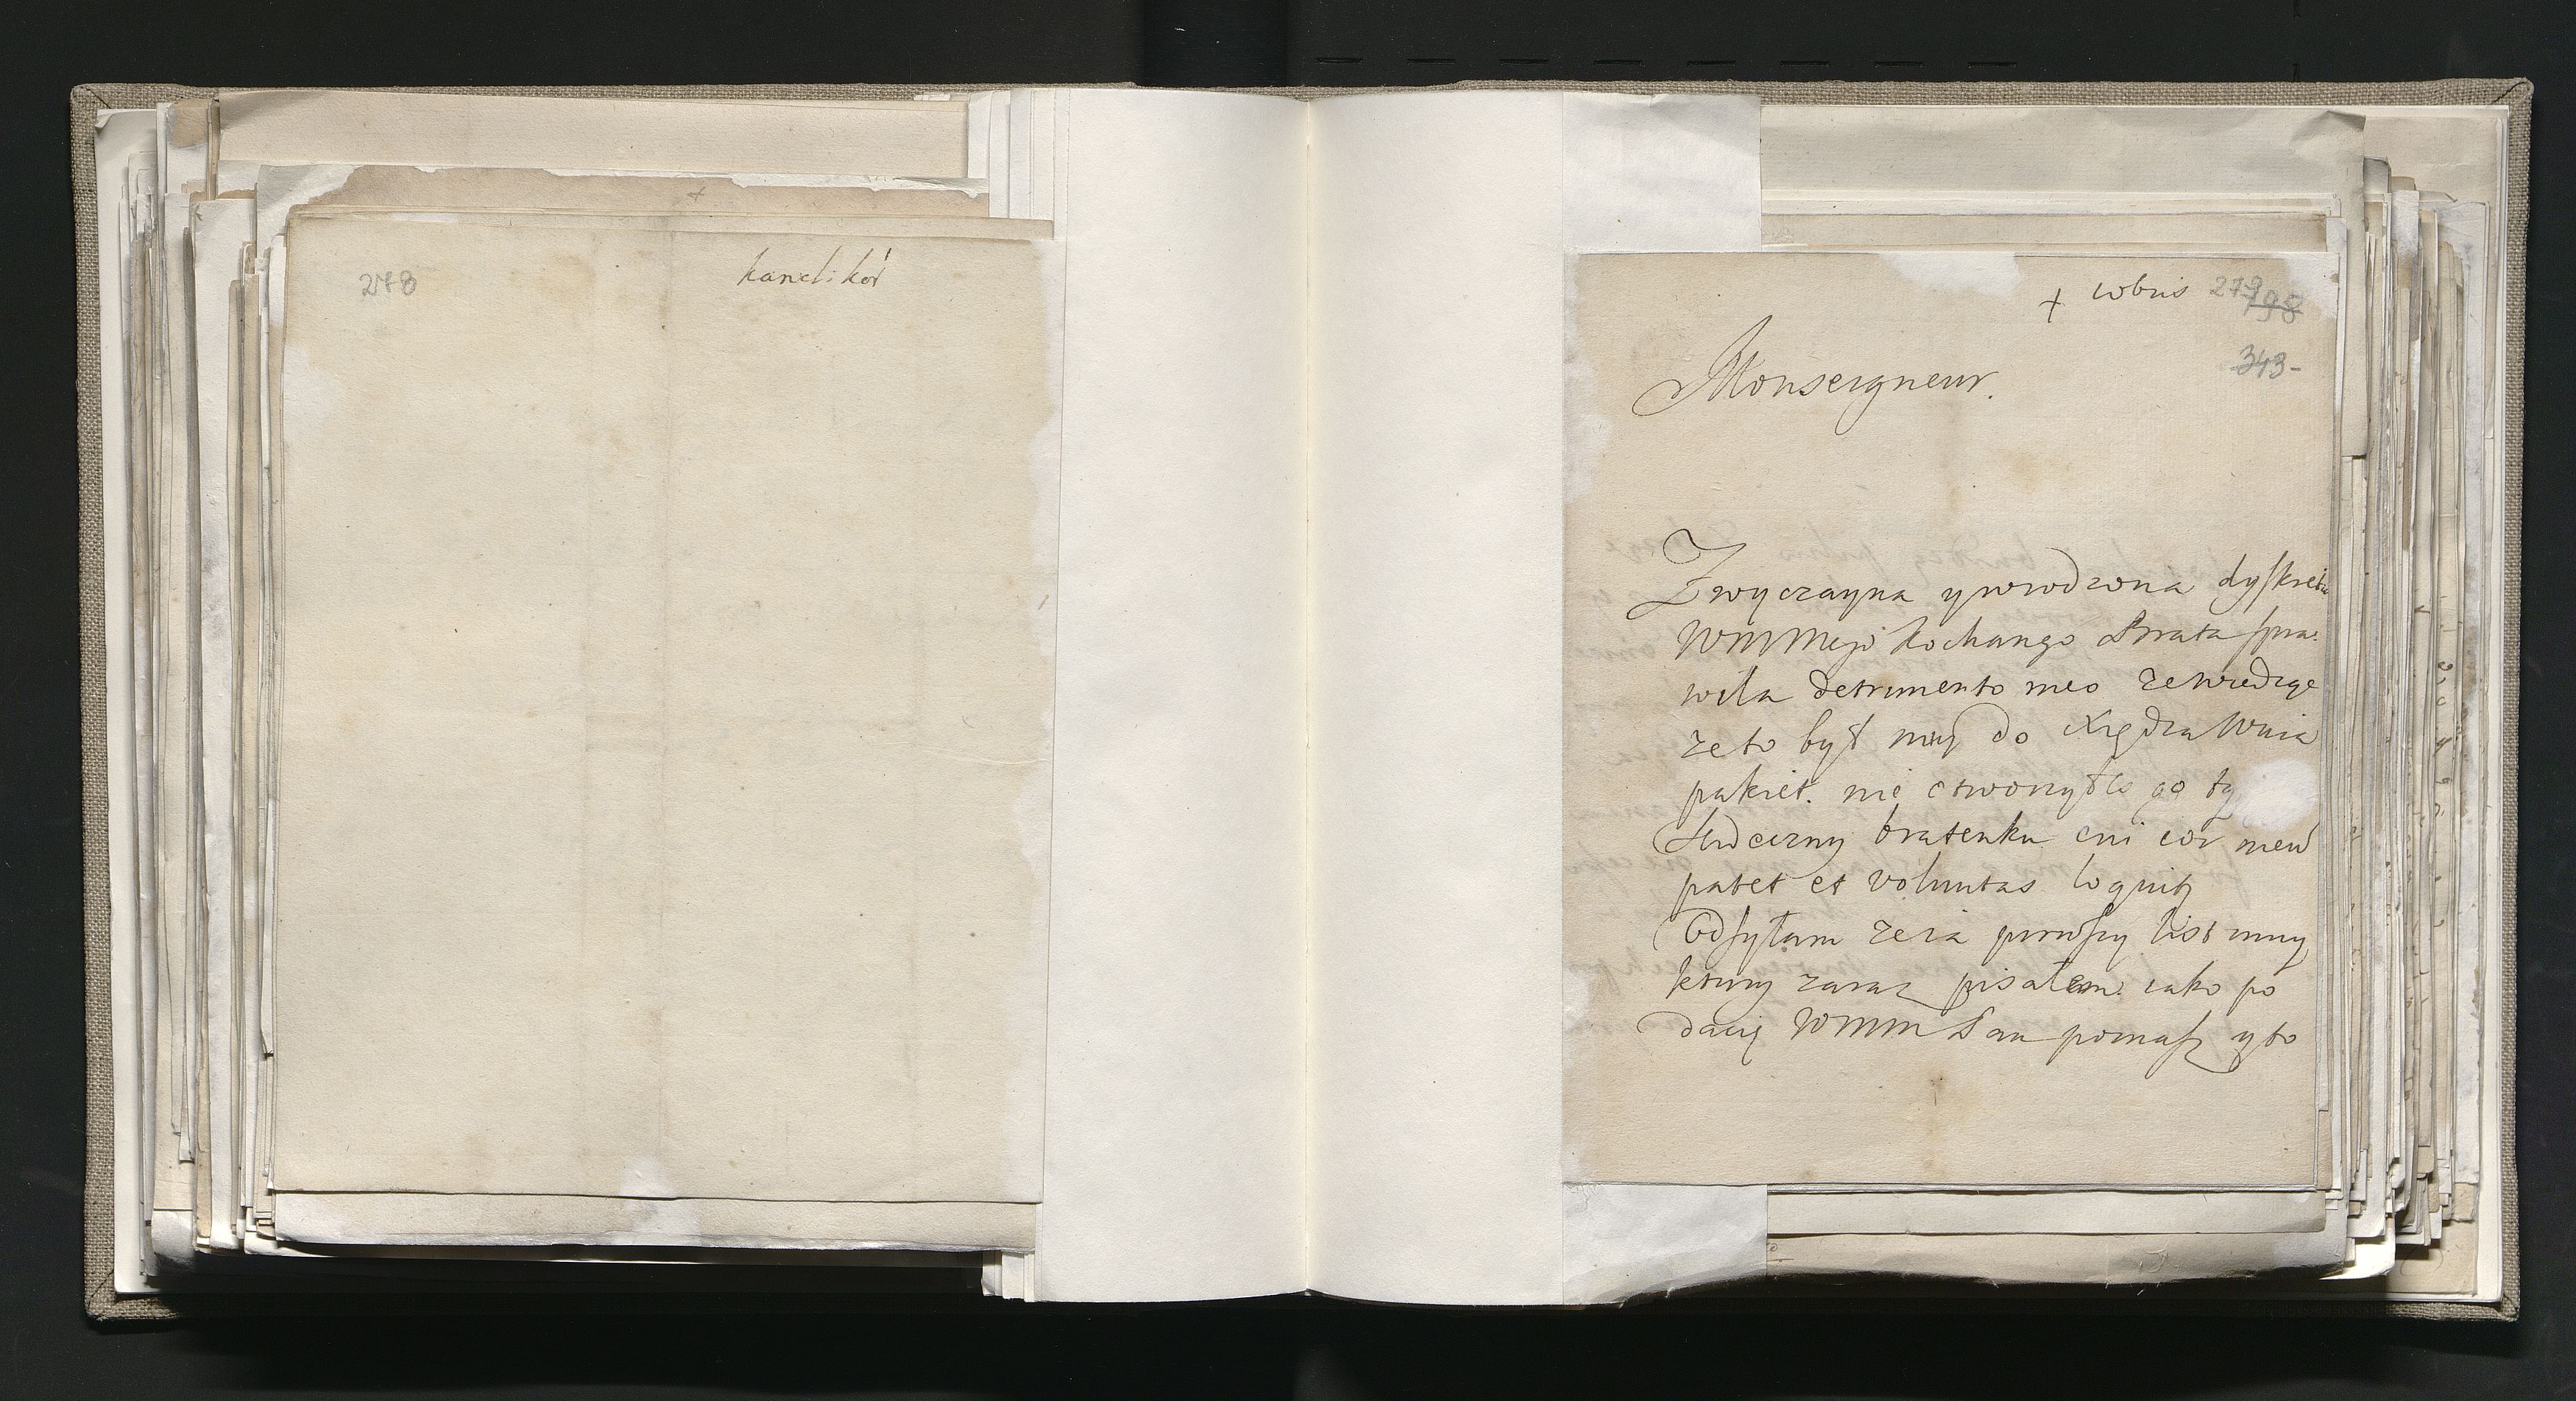 278
kancl: kor
+ cobris 279 198
343-
Monseigneur.
Zwyczayna y wrodzona dyskretia
WMMego kochango Brata spra:
wiła detrimento meo ze wiedząc
ze to był moy do Xiędza Wuia
pakiet. nie otworzyłes go ty
Serdeczny bratenku cui cor meu
patet et voluntas loquitr
Odsyłam zezia pirwszy list moy
ktury zaraz pisałem. iako po
dacię WMM Pan poznasz y to